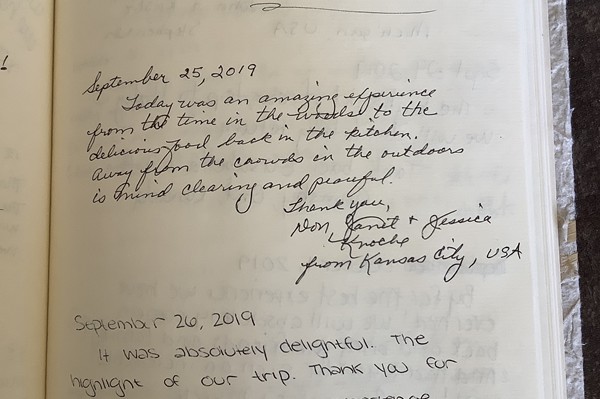 !
September 25, 2019
Today was an amazing experience
from the time in the woods to the
delicious food back in the kitchen.
Away from the crowds in the outdoors
is mind clearing and peaceful.
Thank you,
Don, Janet & Jessica
Knoche
from Kansas City, USA
September 26, 2019
It was absolutely delightful. The
highlight of our trip. Thank you for